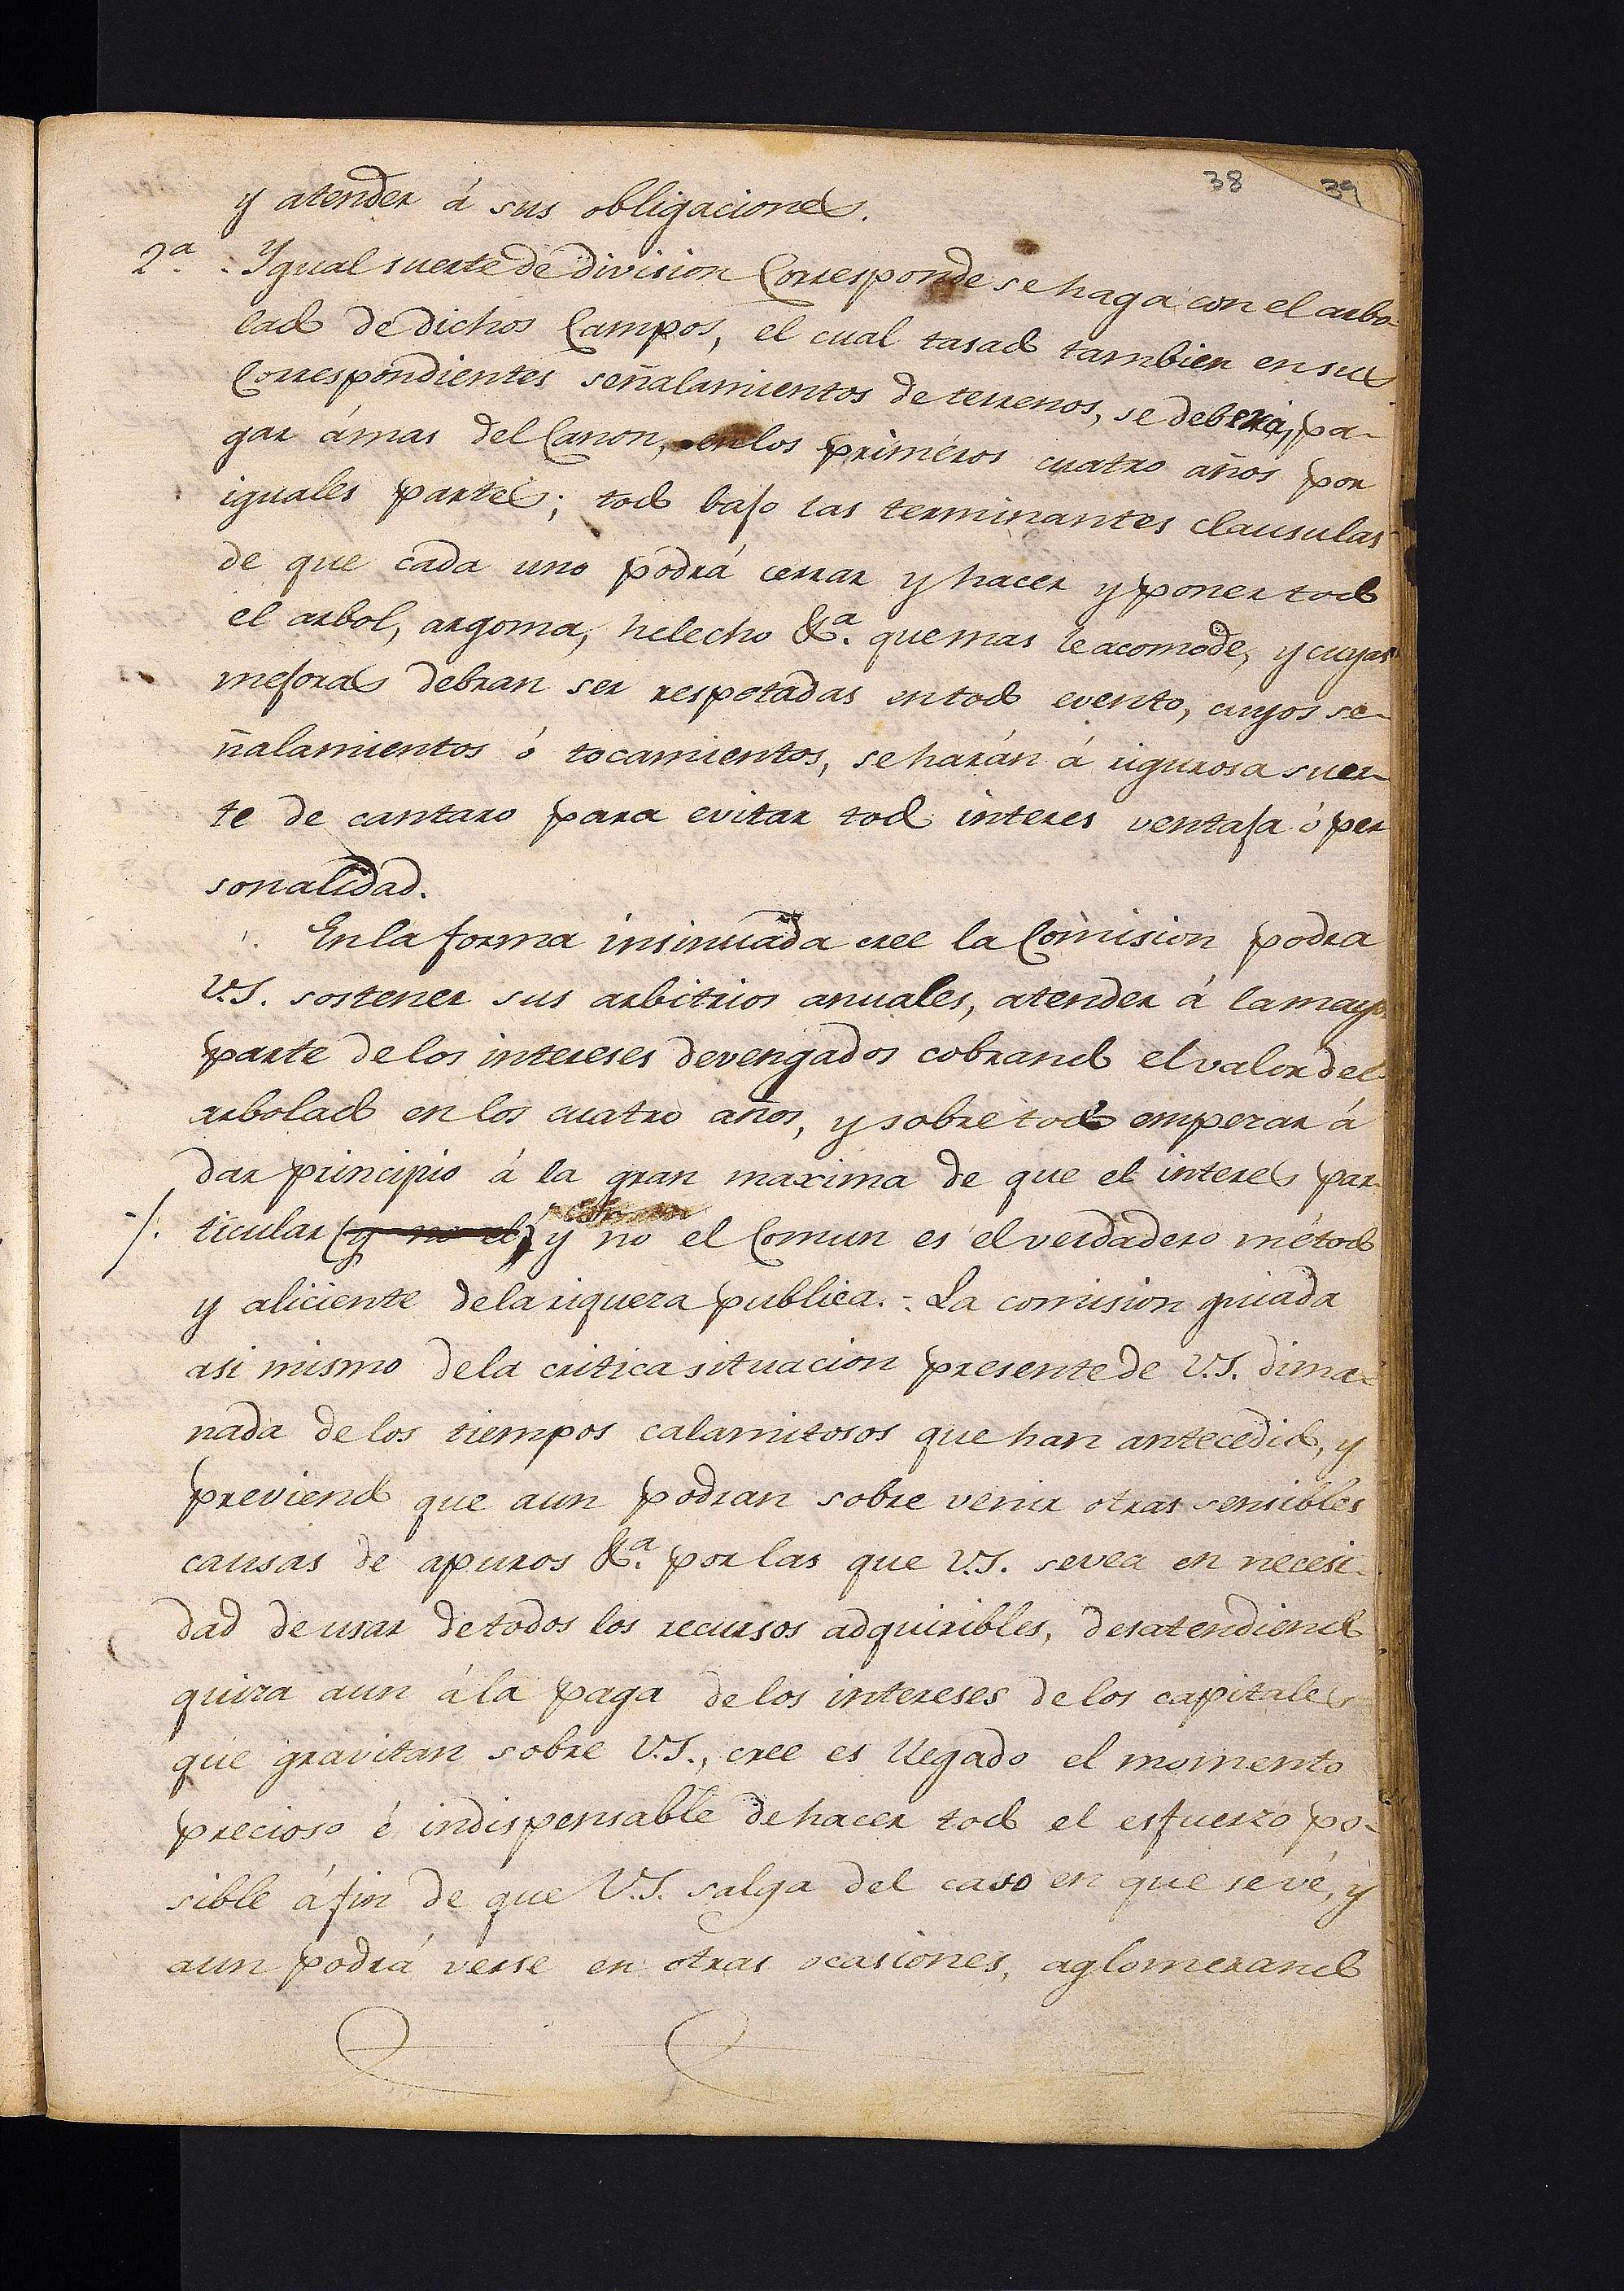 38 39
y atender á sus obligaciones.
2.ª Ygual suerte de division Corresponde se haga con el arbo-
lado de dichos Campos, el cual tasado tambien en sus
Correspondientes señalamientos de terrenos, se deberá, pa-
gar ámas del Canon, en los primeros cuatro años por
iguales partes; todo bajo las terminantes clausulas
de que cada uno podrá cerrar y hacer y poner todo
el arbol, argoma, helecho &.ª que mas le acomode, y cuyas
mejoras debran ser respetadas en todo evento, cuyos se-
ñalamientos ó tocamientos, se harán á rigurosa suer-
te de cantaro para evitar todo interes ventaja ó per
sonalidad.
En la forma insinuada cree la Comision podra
V.S. sostener sus arbitrios anuales, atender á la mayor
parte de los intereses devengados cobrando el valor del
arbolado en los cuatro años, y sobre todo emperar á
dar principio á la gran maxima de que el interes par-
-/. ticular (q no el) y no el Comun es el verdadero método
y aliciente de la riquera publica.-. La comision guiada
asi mismo de la critica situacion presente de V.S. dima-
nada de los tiempos calamitosos que han antecedido, y
previendo que aun podran sobre venir otras sensibles
causas de apuros &.ª por las que V.S. se vea en necesi-
dad de usar de todos los recursos adquiribles, desatendiendo
quira aun á la paga de los intereses de los capitales
que gravitan sobre V.S., cree es llegado el momento
precioso é indispensable de hacer todo el esfuerzo po-
sible á fin de que V.S. salga del caso en que se vé, y
aun podrá verse en otras ocasiones, aglomerando